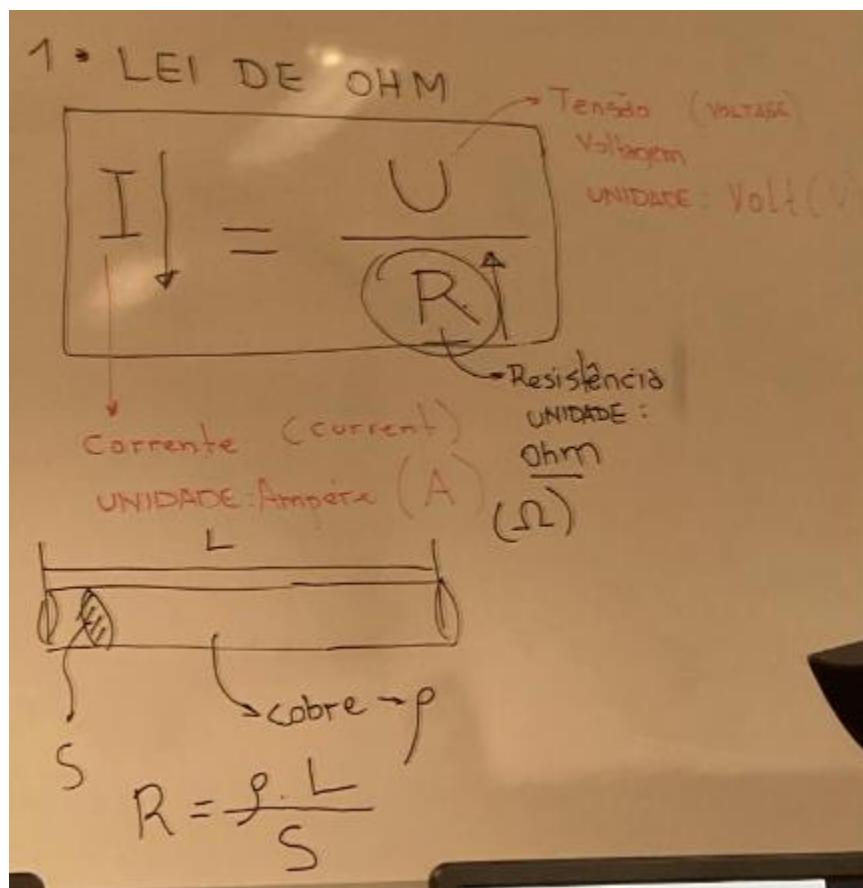 1• LEI DE OHM
I↓ = U / R↑
Tensão (VOLTAGE)
Voltagem
UNIDADE: Volt (V)
Resistência
UNIDADE:
Ohm
(Ω)
Corrente (current)
UNIDADE: Ampére (A)
L
S
cobre → ρ
R = ρ.L / S